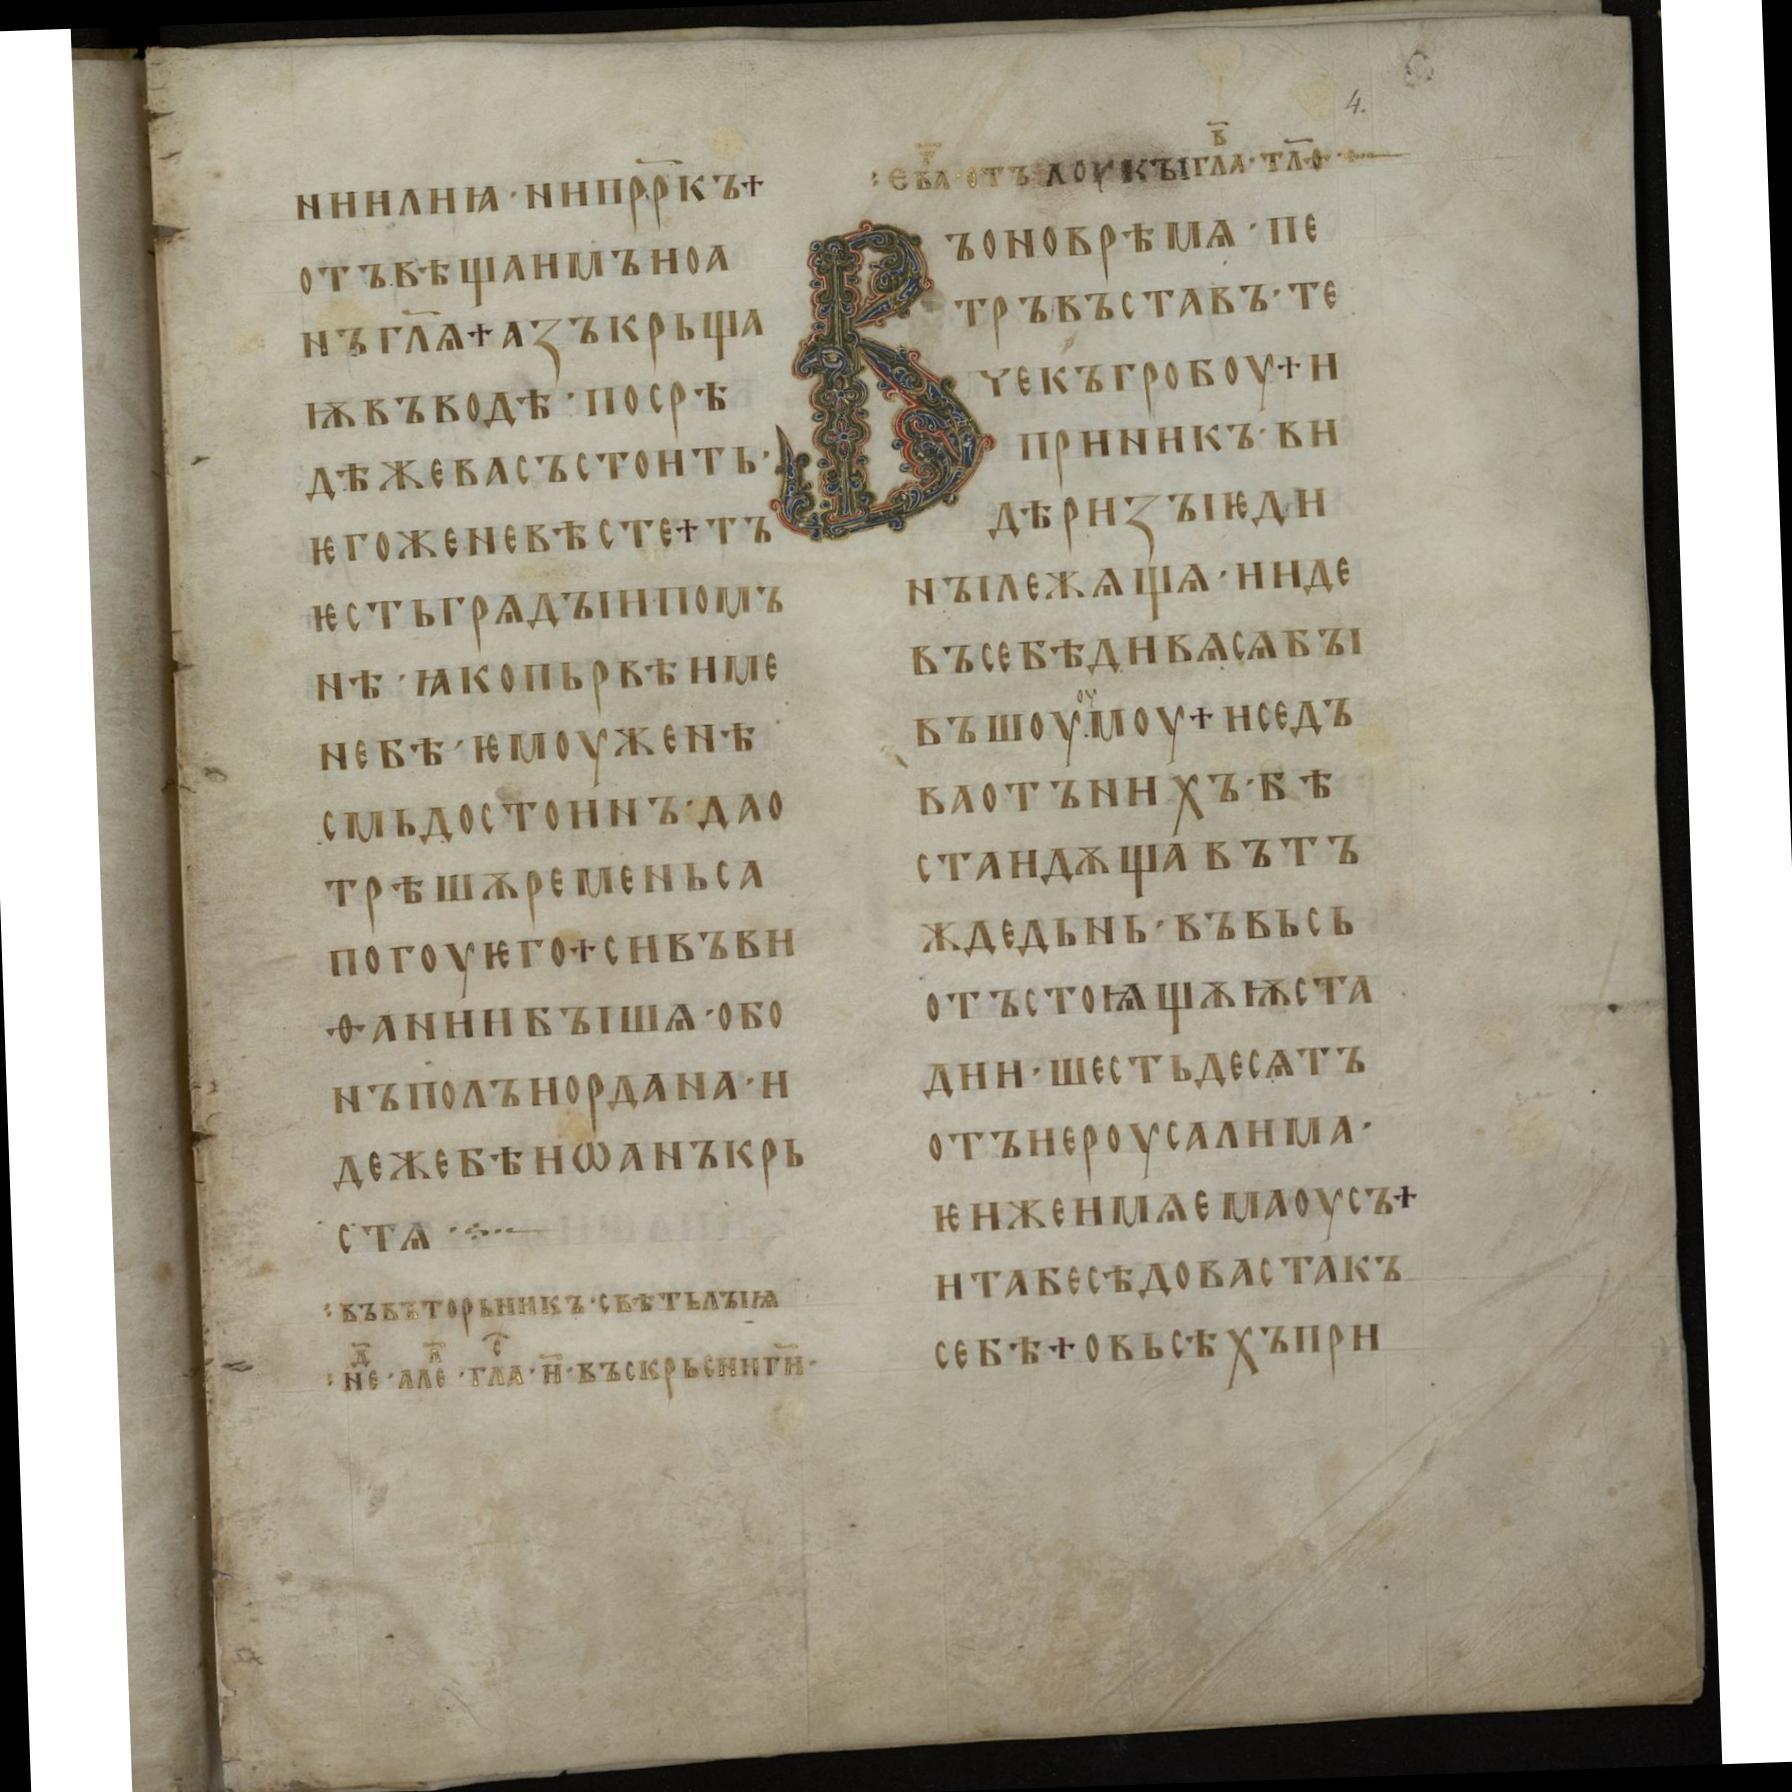 4.
ни илиꙗ · ни пр҃ркъ+
отъвѣща имъ ноа
нъ гл҃ѧ+азъ крьща
ѭ въ водѣ · посрѣ
дѣ же васъ стоить ·
ѥгоже не вѣсте+тъ
ѥсть грѧдꙑи по мъ
нѣ · ꙗко пьрвѣи ме
не бѣ · ѥмоуже нѣ
смь достоинъ · да о
трѣшѫ ремень са
погоу ѥго+си въ ви
ѳании бꙑшѧ · об о
нъ полъ иордана · и
деже бѣ иѡанъ крь
стѧ ·
:въ въторьникъ · свѣтьлꙑꙗ
: н҃е · ꙗле · гла · и҃ · въскрьсни г҃и ·
: ева · отъ лоукꙑ гла · тл҃о ·
Въ оно врѣмѧ · пе
тръ въставъ · те
че къ гробоу+и
приникъ · ви
дѣ ризꙑ ѥди
нꙑ лежѧщѧ · и иде
въ себѣ дивѧсѧ бꙑ
въшоуоумоу+и се дъ
ва отъ нихъ · бѣ
ста идѫща въ тъ
жде дьнь · въ вьсь
отъстоѩщѫѭ ста
дии · шесть десѧтъ
отъ иероусалима ·
ѥи же имѧ емаоусъ+
и та бесѣдоваста къ
себѣ+о вьсѣхъ при